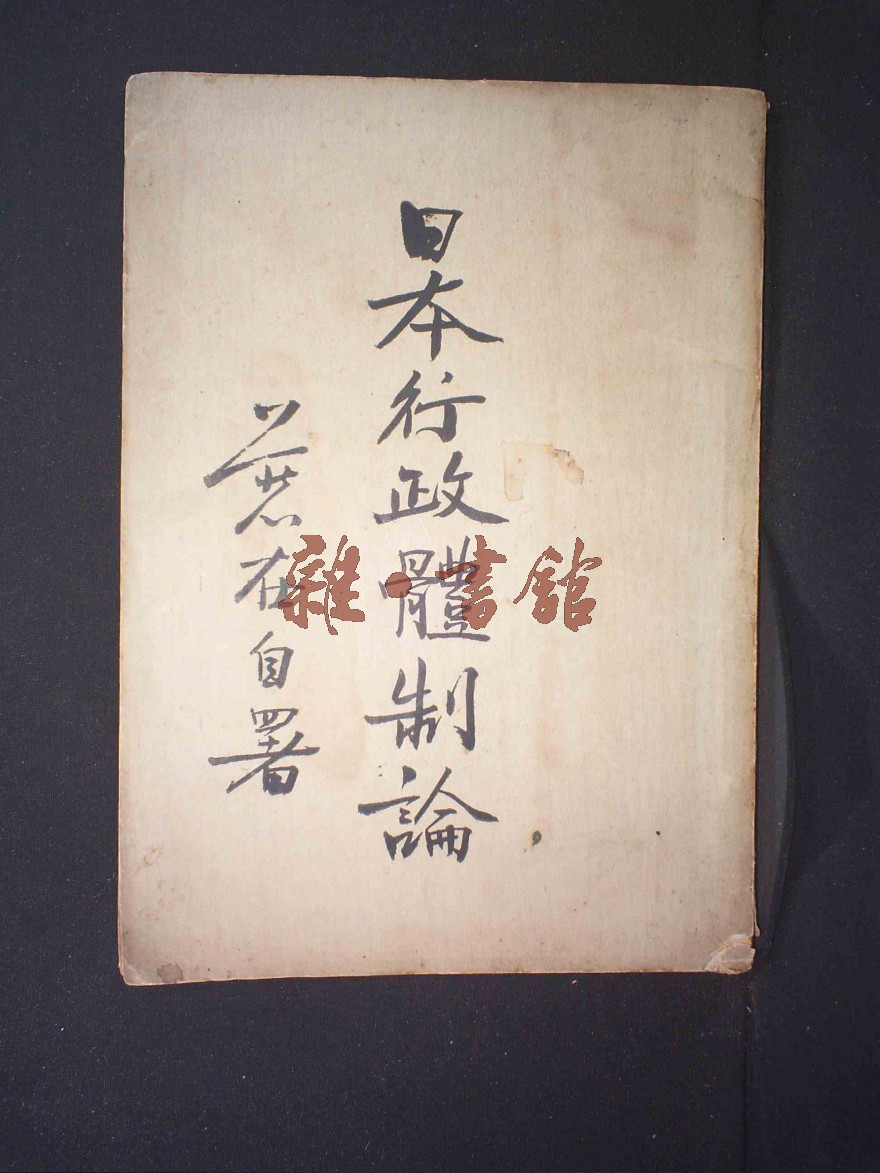 日本行政體制論
在自署
雜·書館